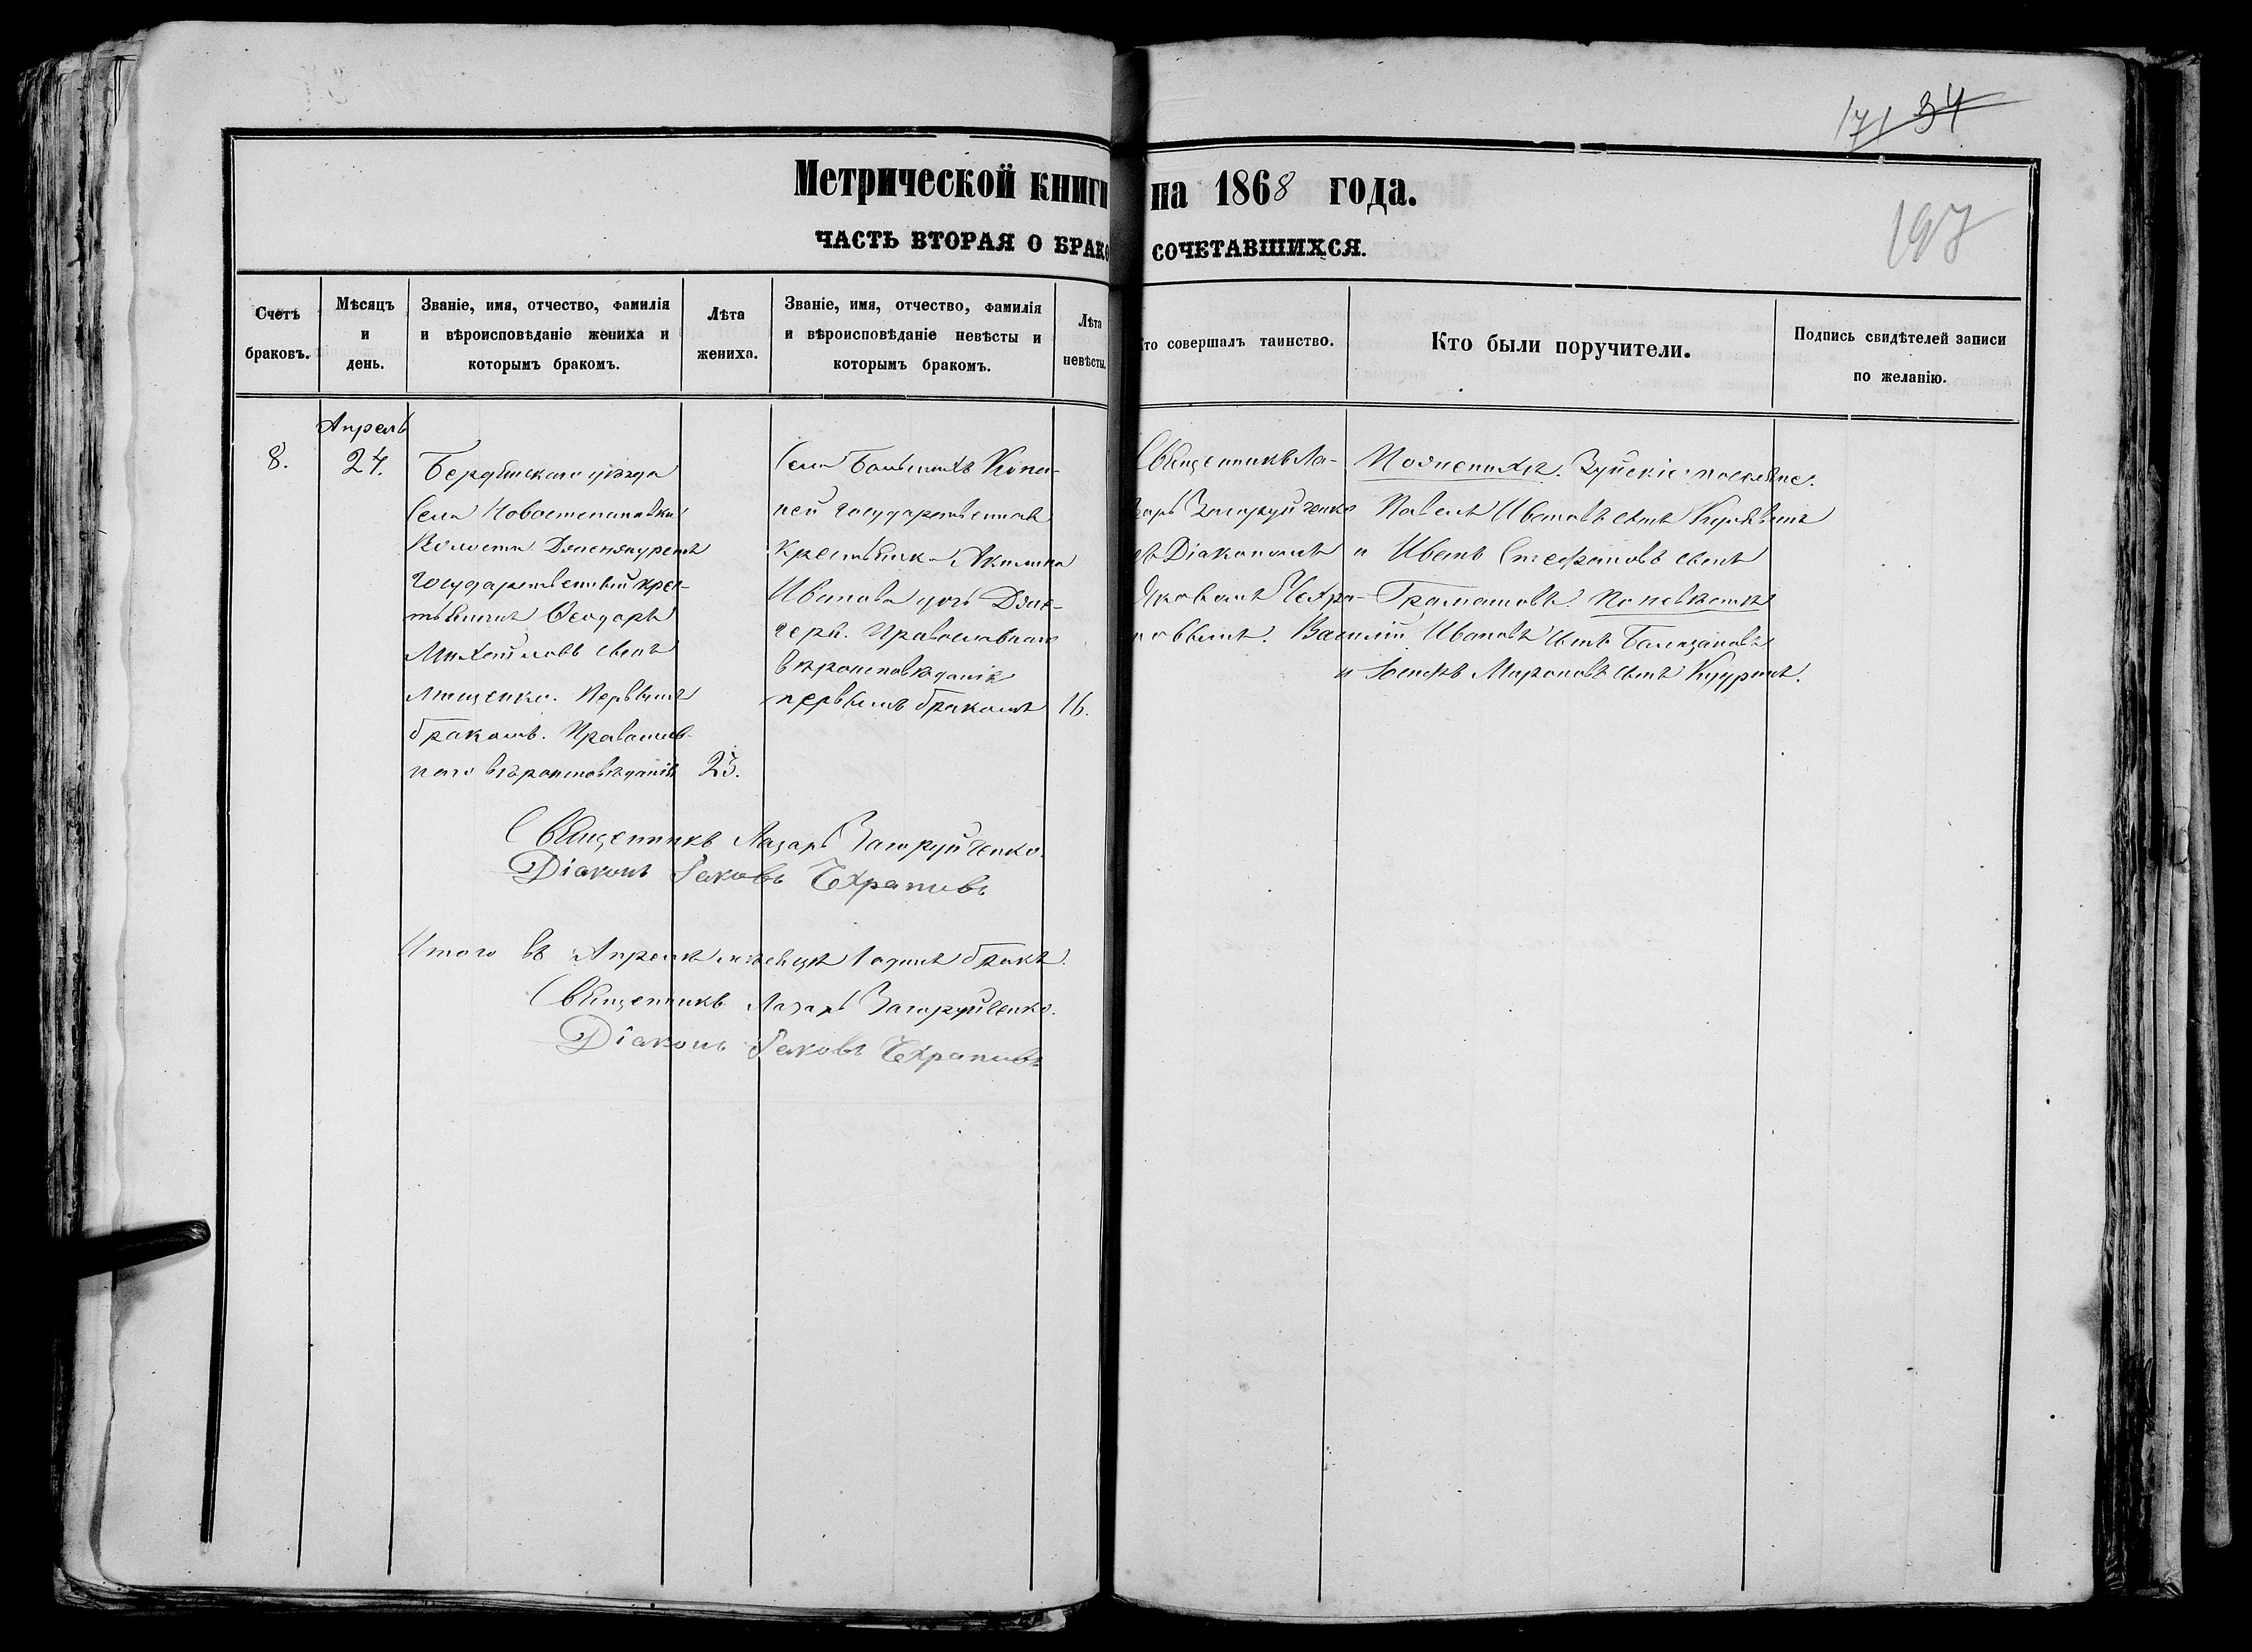 171 34
197
Метрической книги на 1868 года.
ЧАСТЬ ВТОРАЯ О БРАКО СОЧЕТАВШИХСЯ.
Счетъ браковъ.
Мѣсяцъ и день.
Званіе, имя, отчество, фамилія
и вѣроисповѣданіе жениха и
которымъ бракомъ.
Лѣта жениха.
Званіе, имя, отчество, фамилія
и вѣроисповѣданіе невѣсты и
которымъ бракомъ.
Лѣта невѣсты.
то совершалъ таинство.
Кто были поручители.
Подпись свидѣтелей записи
по желанію.
8.
Апрель
24.
Бердянскаго уѣзда
Села Новостепановки
Волости
Государственный крес-
тьянинъ Ѳеодоръ
Михайловъ сынъ
Лященко. Первымъ
бракомъ. Православ-
наго вѣроисповѣданія
25.
Села Большихъ Копа-
ней Государственная
крестьянка Акилина
Иванова дочь
Православнаго
вѣроисповѣданія
первымъ бракомъ
16.
Священникъ Ла-
зарь Загоруйченко
съ Діакономъ
Яковомъ Чехра-
новымъ.
По женихѣ.
Павелъ Ивановъ сынъ
и Иванъ Стефановъ сынъ
Грамашовъ. По невѣстѣ
Василій Ивановъ сынъ
и Іосифъ Мироновъ сынъ
Священникъ Лазарь Загоруйченко.
Діаконъ Іаковъ Чехрановъ
Итого въ Апрелѣ мѣсяцѣ 1 одинъ бракъ.
Священникъ Лазарь Загоруйченко.
Діаконъ Іаковъ Чехрановъ